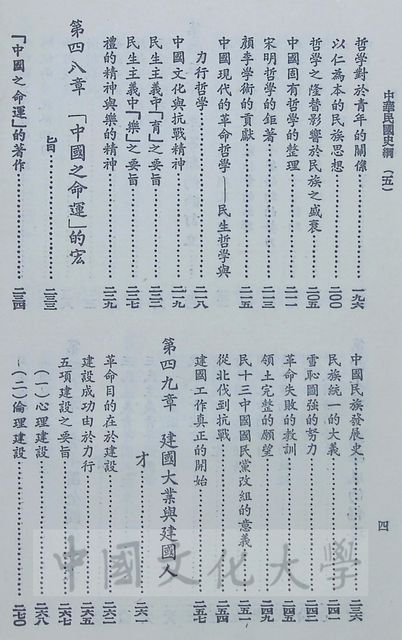 中華民國史綱（五）
四
哲學對於青年的關係……一九六
以仁為本的民族思想……二〇〇
哲學之隆替影響於民族之盛衰……二〇五
中國固有哲學的整理……二一一
宋明哲學的鉅著……二一三
顏李學術的貢獻……二一五
中國現代的革命哲學——民生哲學與
力行哲學……二一八
中國文化與抗戰精神……二一九
民生主義中「育」之要旨……二二一
民生主義中「樂」之要旨……二二七
禮的精神與樂的精神……二二九
第四八章 「中國之命運」的宏
旨……二三三
「中國之命運」的著作……二三四
中國民族發展史……二三六
民族統一的大義……二四一
雪恥圖強的努力……二四二
革命失敗的教訓……二四五
領土完整的願望……二四九
民十三中國國民黨改組的意義……二五一
從北伐到抗戰……二五四
建國工作真正的開始……二五七
第四九章 建國大業與建國人
才……二六一
革命目的在於建設……二六二
建設成功由於力行……二六五
五項建設之要旨……二六七
（一）心理建設……二六八
（二）倫理建設……二七〇
中國文化大學